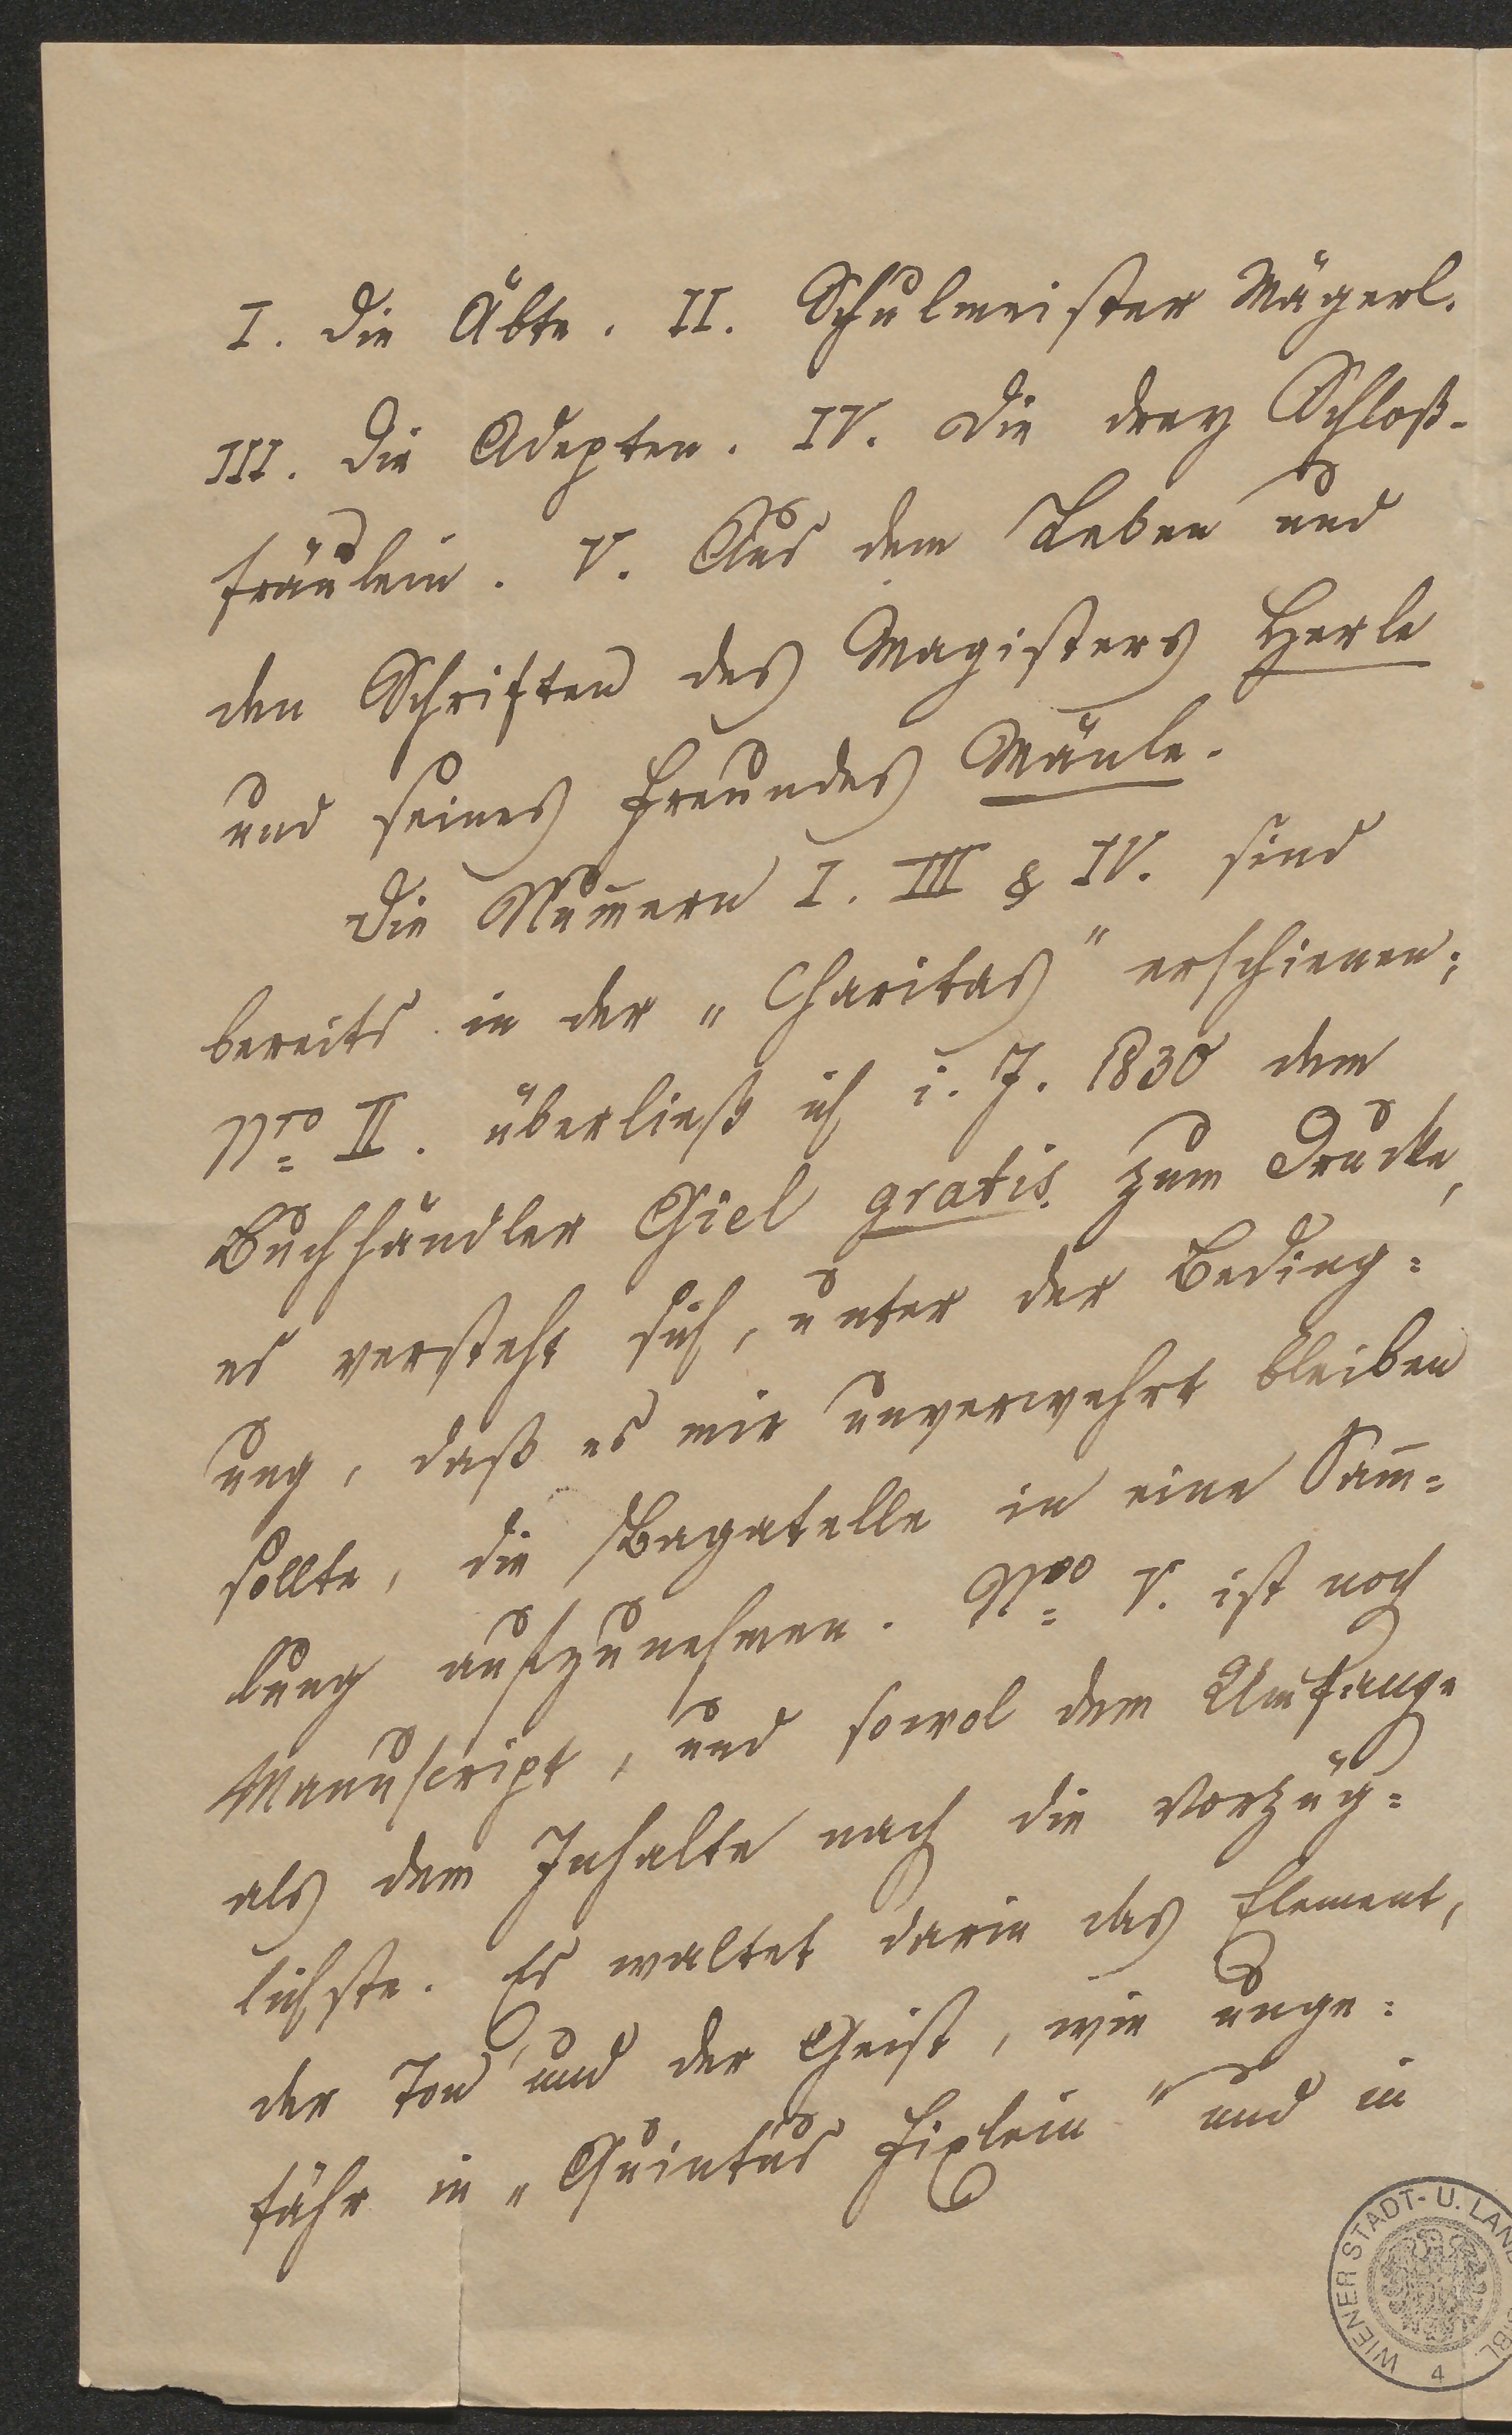 I. Die Äbte. II. Schulmeister Mägerl.
III. Die Adepten. IV. Die drey Schloß-
fräulein. V. Aus dem Leben und
den Schriften des Magisters Herle
und seines Freundes Mänle.
Die Num̅ern I. III & IV. sind
bereits in der „Charitas" erschienen;
Nro II. überließ ich i. J. 1830 dem
Buchhändler Giel gratis zum Drucke,
es versteht sich, unter der Beding=
ung, daß es mir unverwehrt bleiben
sollte, die Bagatelle in eine Sam̅=
lung aufzunehmen. Nro V. ist noch
Manuscript, und sowol dem Umfange
als dem Inhalte nach die vorzüg=
lichste. Es waltet darin das Element,
der Ton und der Geist, wie unge=
fähr in „Quintus Fixlein" und in
WIENER STADT- U. LAN
BIBL.
4